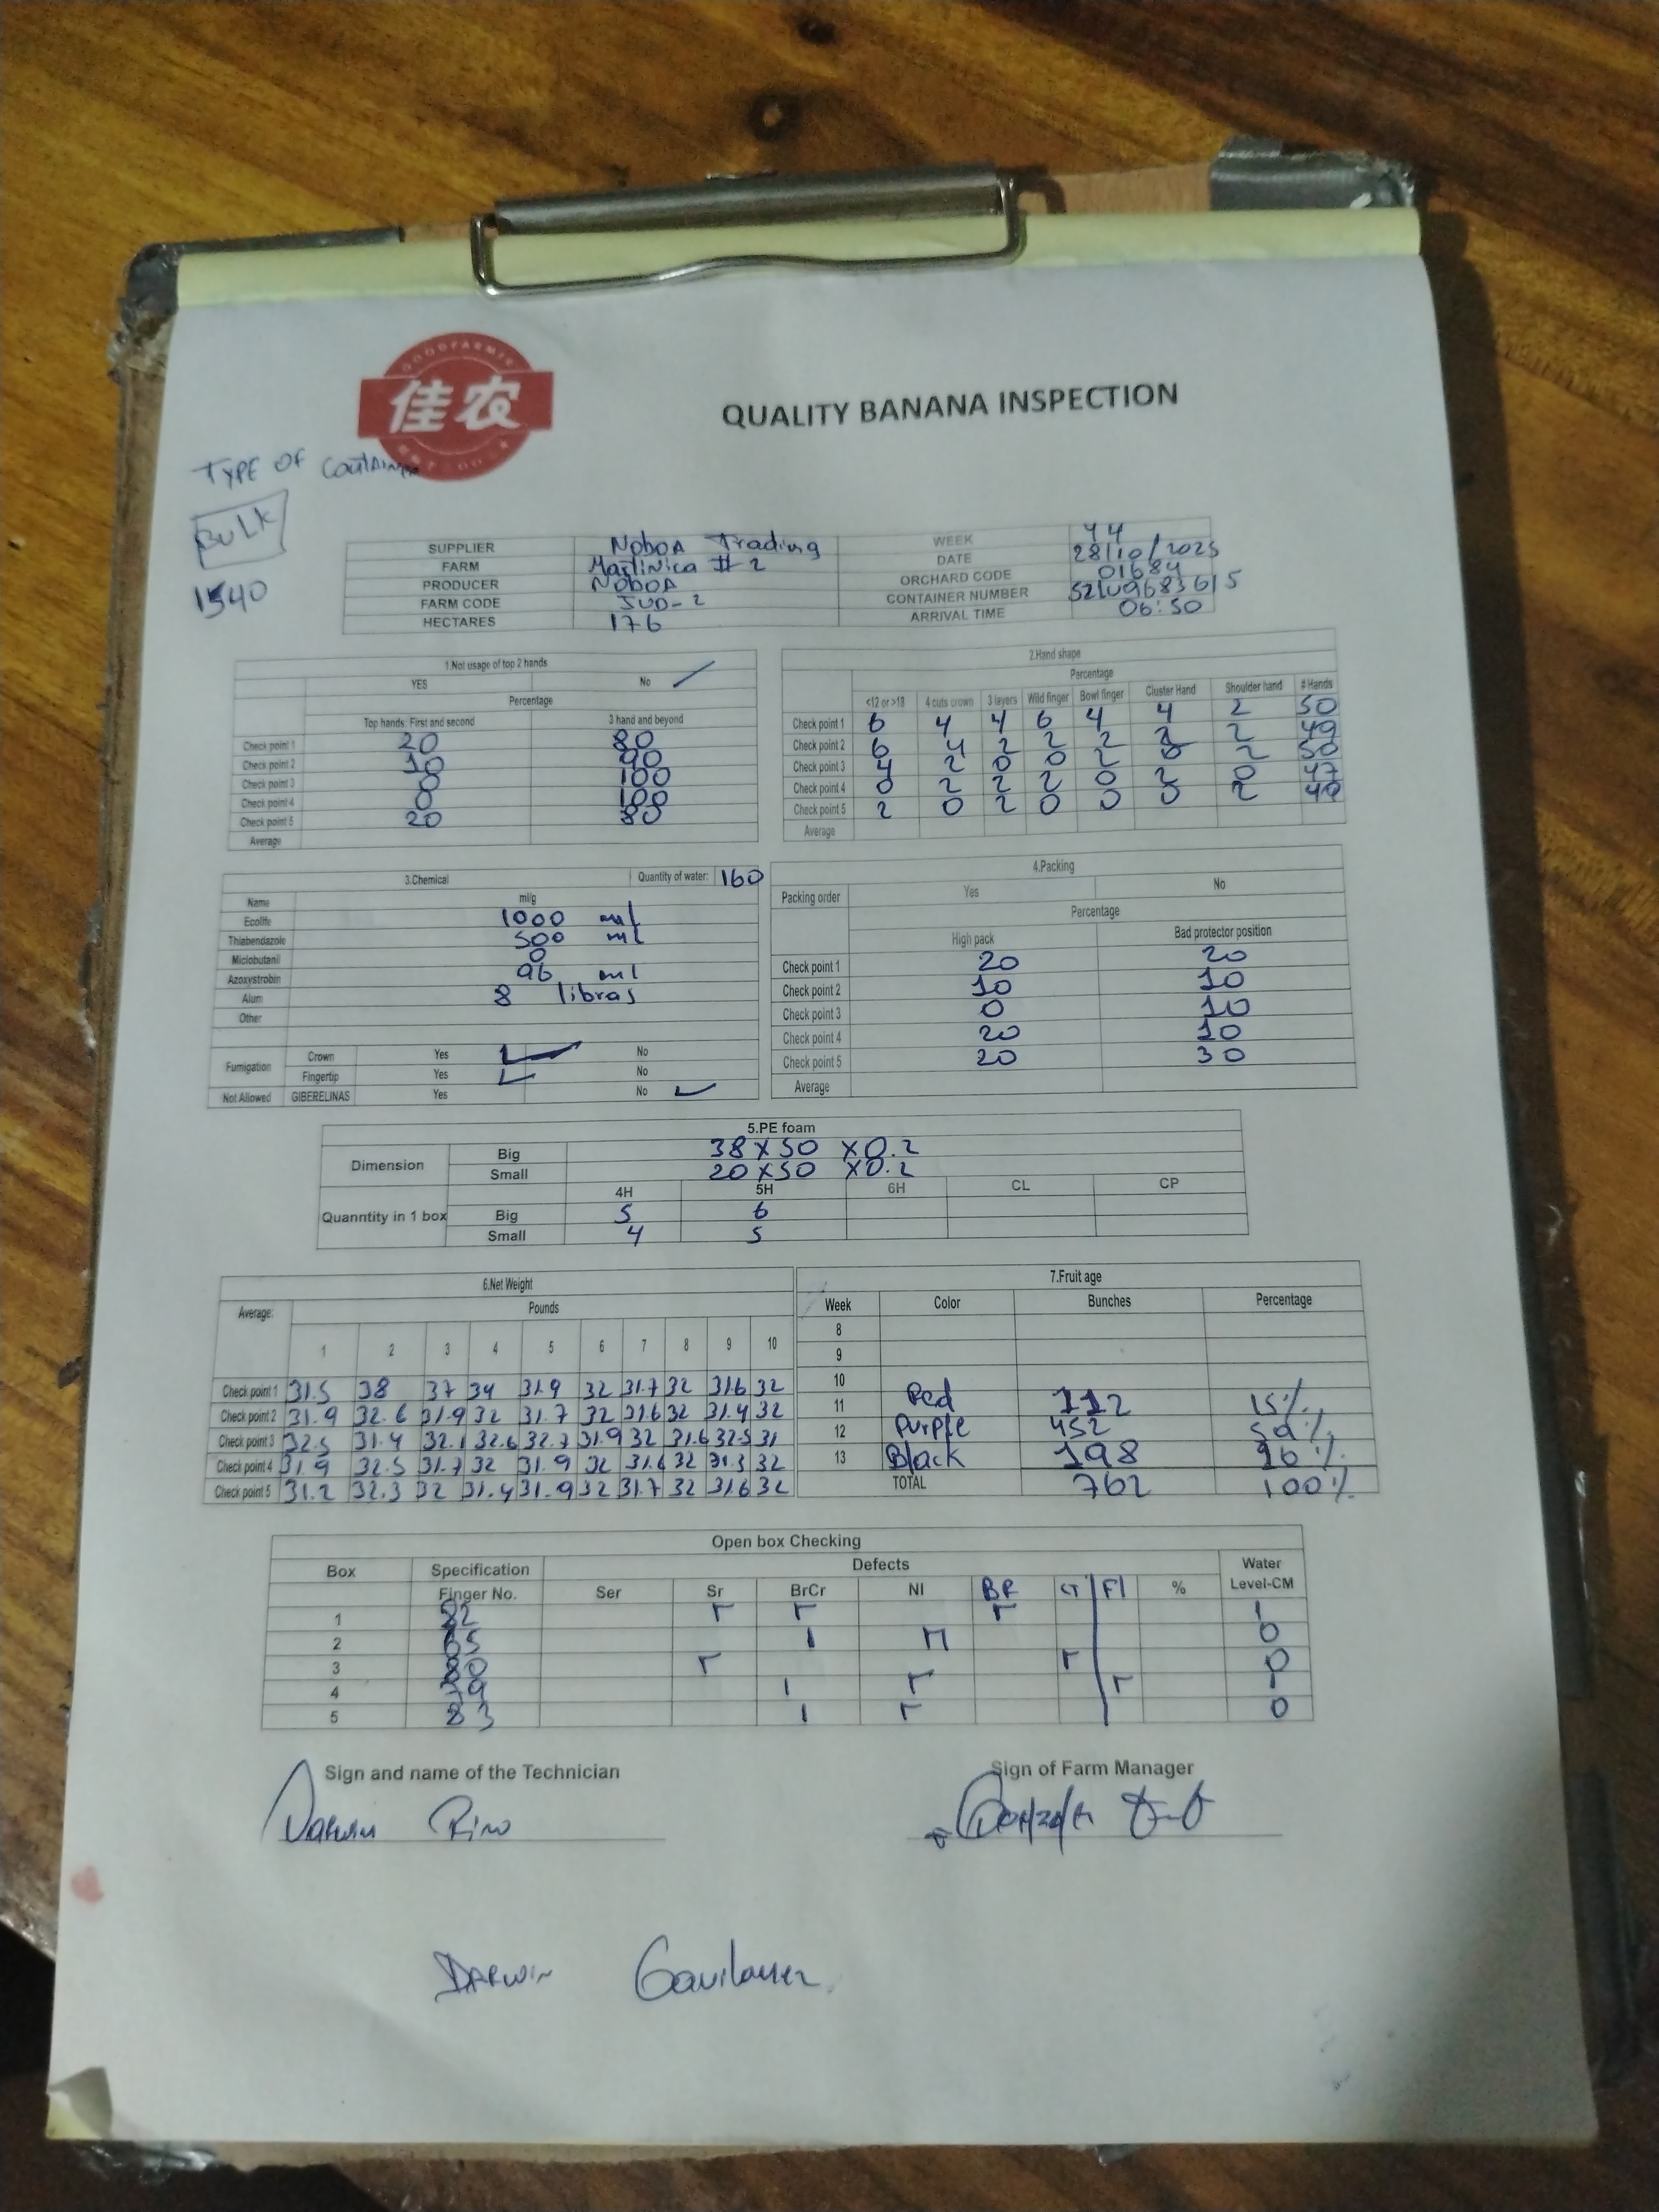 GOODFARMER
佳农
QUALITY BANANA INSPECTION
TYPE OF Container
BULK
1540
SUPPLIER Noboa Trading WEEK 44
FARM Martinica # 2 DATE 28/10/2025
PRODUCER NoboA ORCHARD CODE 01684
FARM CODE JUD-2 CONTAINER NUMBER
HECTARES 176 ARRIVAL TIME 06:50
1.Not usage of top 2 hands
YES No
Percentage
Top hands: First and second 3 hand and beyond
Check point 1 20 80
Check point 2 10 90
Check point 3 0 100
Check point 4 0 100
Check point 5 20 80
Average
2.Hand shape
Percentage
<12 or >18 4 cuts crown 3 layers Wild finger Bowl finger Cluster Hand Shoulder hand # Hands
Check point 1 6 4 4 6 4 4 2 50
Check point 2 6 4 2 2 2 2 2 49
Check point 3 4 2 0 0 2 0 2 50
Check point 4 0 2 2 2 0 2 0 47
Check point 5 2 0 2 0 0 0 2 49
Average
3.Chemical Quantity of water: 160
Name ml/g
Ecolife 1000 ml
Thiabendazole 500 ml
Miclobutanil 0
Azoxystrobin 96 ml
Alum 8 libras
Other
Fumigation Crown Yes No
Fingertip Yes No
Not Allowed GIBERELINAS Yes No
4.Packing
Packing order Yes No
Percentage
High pack Bad protector position
Check point 1 20 20
Check point 2 10 10
Check point 3 0 10
Check point 4 20 10
Check point 5 20 30
Average
5.PE foam
Dimension Big 38 x 50 x 0.2
Small 20 x 50 x 0.2
4H 5H 6H CL CP
Quanntity in 1 box Big 5 6
Small 4 5
6.Net Weight
Average: Pounds
1 2 3 4 5 6 7 8 9 10
Check point 1 31.5 38 37 34 31.9 32 31.7 32 31.6 32
Check point 2 31.9 32.6 31.9 32 31.7 32 31.6 32 31.4 32
Check point 3 32.5 31.4 32.1 32.6 32.7 31.9 32 31.6 32.5 31
Check point 4 31.9 32.5 31.7 32 31.9 32 31.6 32 31.3 32
Check point 5 31.2 32.3 32 31.4 31.9 32 31.7 32 31.6 32
7.Fruit age
Week Color Bunches Percentage
8
9
10
11 Red 112 15%
12 Purple 452 59%
13 Black 198 26%
TOTAL 762 100%
Open box Checking
Box Specification Defects Water
Finger No. Ser Sr BrCr NI BR CT FI % Level-CM
1 82 1
2 0
3 80 0
4 79 1
5 83 0
Sign and name of the Technician Sign of Farm Manager
Darwin
DARWIN Gavilanez